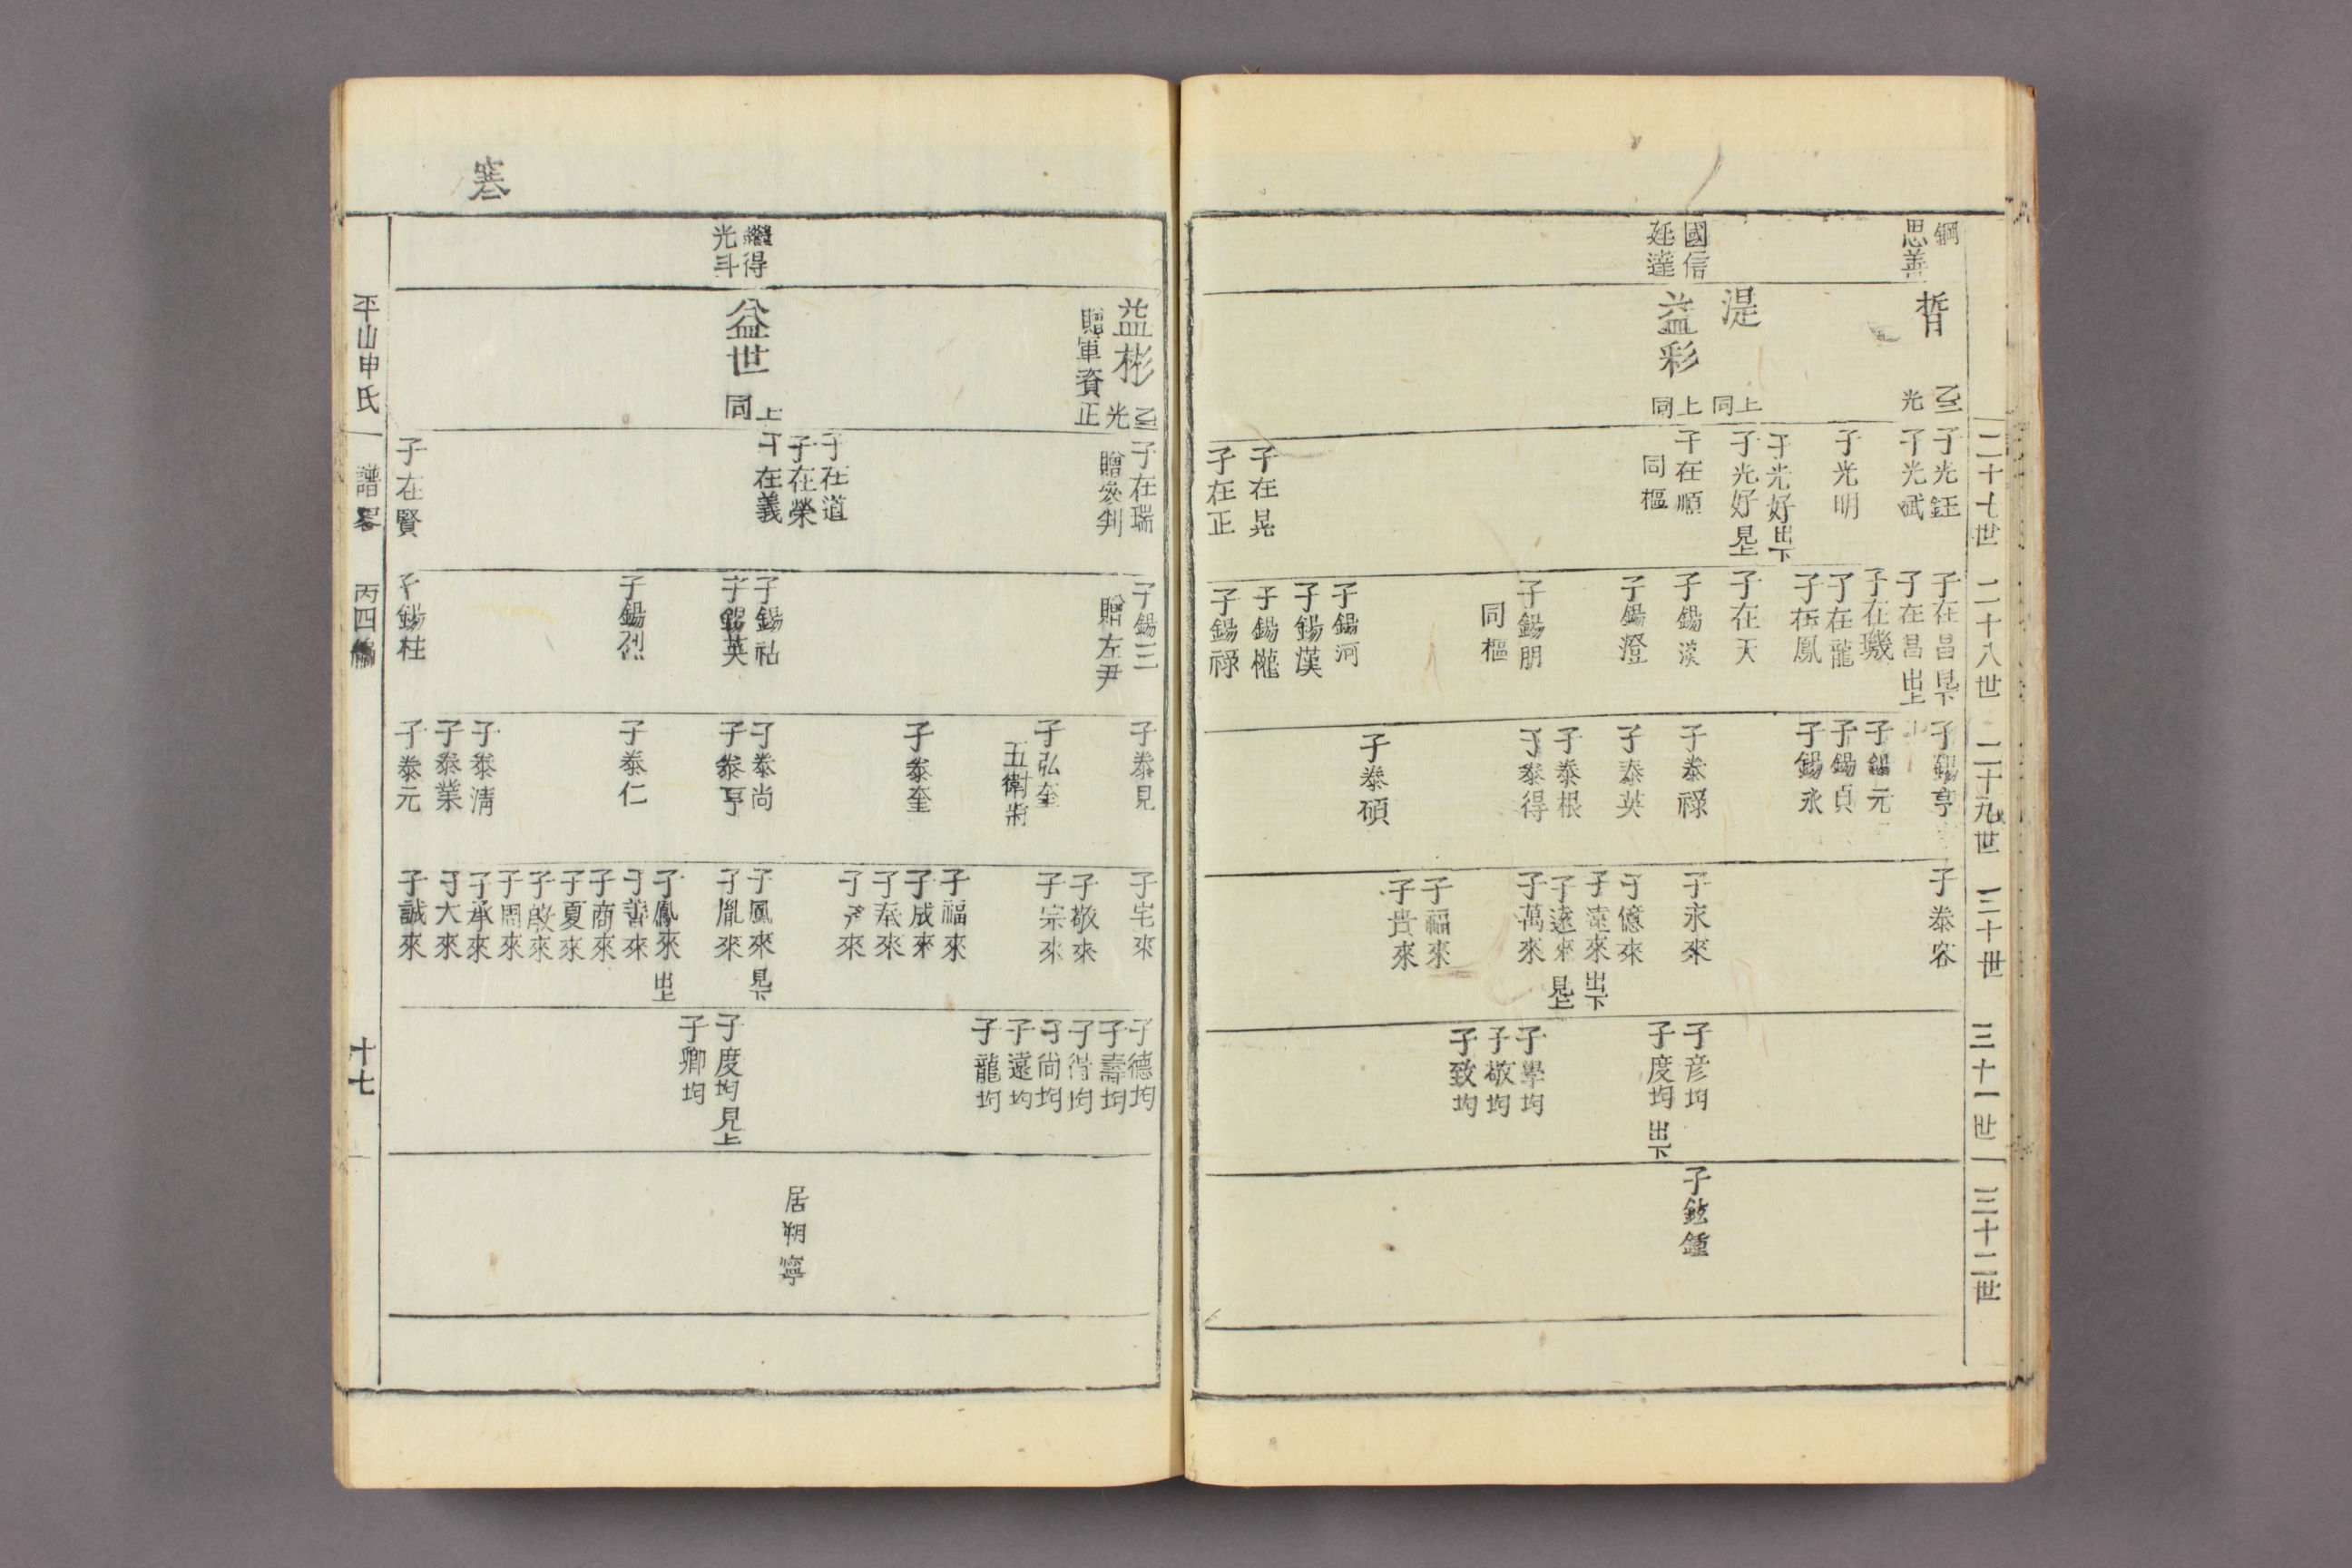 二十七世
二十八世
二十九世
三十世
三十一世
三十二世
鋼
思善
國信
廷達
晢
光
湜
上
同
益彩
上
同
子光鈺
子光斌
子光明
子光好出下
子光好見上
子在順
同樞
子在晃
子在正
子在昌見下
子在昌出上
子在璣
子在龍
子在鳳
子在天
子錫漢
子錫澄
子錫朋
同樞
子錫河
子錫漢
子錫櫳
子錫祿
子錫亨
子錫元
子錫貞
子錫永
子泰祿
子泰英
子泰根
子泰得
子泰碩
子泰容
子永來
子億來
子遠來出下
子遠來見上
子萬來
子福來
子貴來
子彦均
子度均出下
子學均
子敬均
子致均
子鉉鍾
寒
繼得
光斗
益彬
光
贈軍資正
益世
上
同
子在瑞
贈參判
子在道
子在榮
子在義
子在賢
子錫三
贈左尹
子錫祜
子錫英
子錫烈
子錫柱
子泰見
子弘奎
五衛將
子泰奎
子泰尚
子泰亨
子泰仁
子泰淸
子泰業
子泰元
子宅來
子敬來
子宗來
子福來
子成來
子奉來
子來
子鳳來見下
子胤來
子鳳來出上
子善來
子商來
子夏來
子啟來
子周來
子承來
子大來
子誠來
子德均
子壽均
子得均
子尚均
子遠均
子龍均
子度均見上
子卿均
居朔寧
平山申氏
譜畧
丙四編
十七